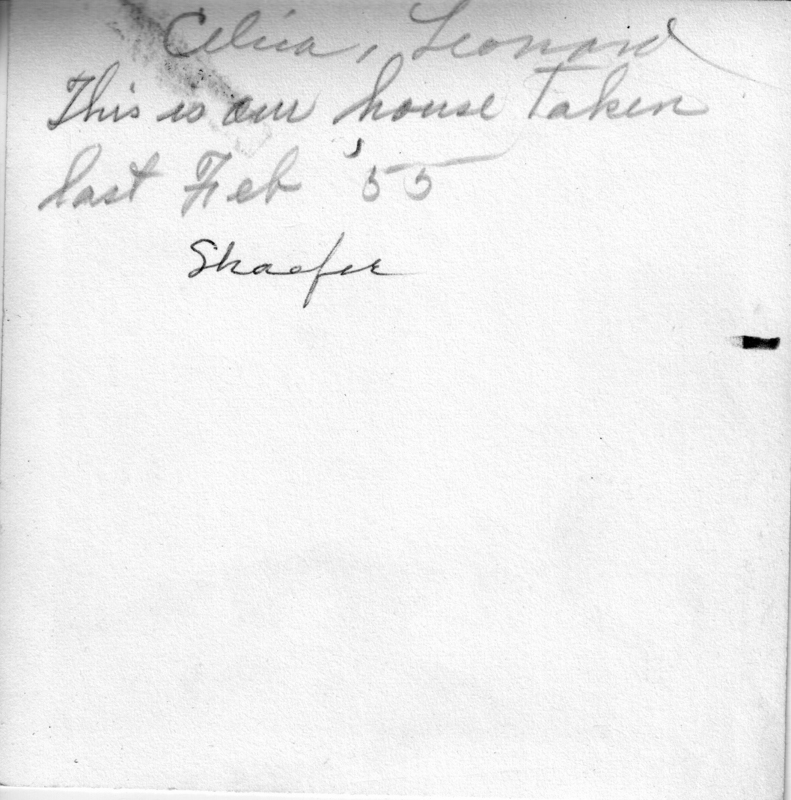 Celia, Leonard
This is our house taken
last Feb '55
Shaefer